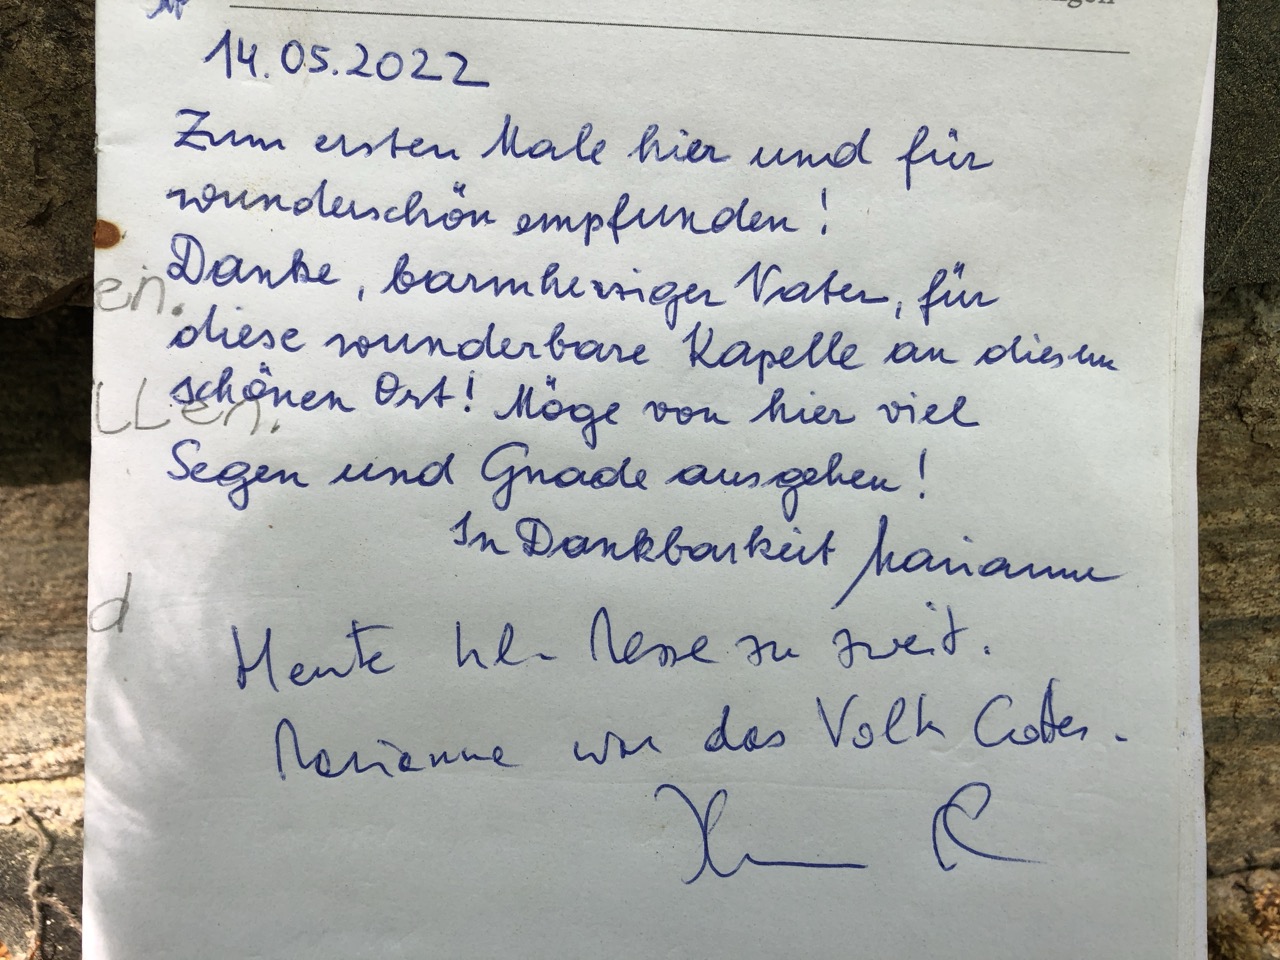 14.05.2022
Zum ersten Male hier und für
wunderschön empfunden!
Danke, barmherziger Vater, für
en.
diese wunderbare Kapelle an diesem
schönen Ort! Möge von hier viel
LLen.
Segen und Gnade ausgehen!
In Dankbarkeit Marianne
d
Heute hl. Messe zu zweit.
Marianne war das Volk Gottes.